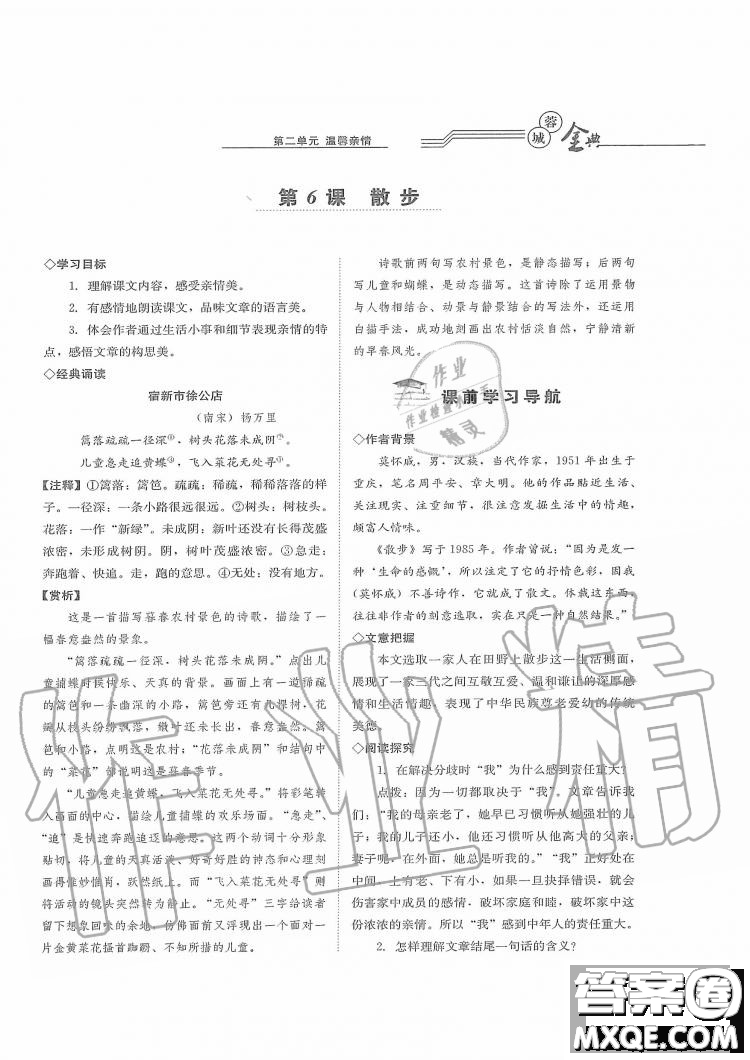 第二单元 温馨亲情
蓉城金典
第6课 散步
◇学习目标
1. 理解课文内容，感受亲情美。
2. 有感情地朗读课文，品味文章的语言美。
3. 体会作者通过生活小事和细节表现亲情的特
点，感悟文章的构思美。
◇经典诵读
宿新市徐公店
（南宋）杨万里
篱落疏疏一径深①，树头花落未成阴②。
儿童急走追黄蝶③，飞入菜花无处寻④。
【注释】①篱落：篱笆。疏疏：稀疏，稀稀落落的样
子。一径深：一条小路很远很远。②树头：树枝头。
花落：一作“新绿”。未成阴：新叶还没有长得茂盛
浓密，未形成树阴。阴，树叶茂盛浓密。③急走：
奔跑着、快追。走，跑。④无处：没有地方。
【赏析】
这是一首描写暮春农村景色的诗歌，描绘了一
幅春意盎然的景象。
“篱落疏疏一径深，树头花落未成阴。”点出儿
童捕蝶时候快乐、天真的背景。画面上有一道稀疏
的篱笆和一条幽深的小路，篱笆旁还有几棵树，花
瓣从枝头纷纷飘落，嫩叶还未长出，春意盎然。篱
笆和小路，点明这是农村；“花落未成阴”和结句中
的“菜花”都说明这是暮春季节。
“儿童急走追黄蝶，飞入菜花无处寻。”将彩笔转
入画面的中心，描绘儿童捕蝶的欢乐场面。“急走”、
“追”是快速奔跑追逐的意思。这两个动词十分形象
贴切，将儿童的天真活泼、好奇好胜的神态和心理刻
画得惟妙惟肖，跃然纸上。而“飞入菜花无处寻”则
将活动的镜头突然转为静止。“无处寻”三字给读者
留下想象回味的余地，仿佛面前又浮现出一个面对一
片金黄菜花搔首踟蹰、不知所措的儿童。
诗歌前两句写农村景色，是静态描写；后两句
写儿童和蝴蝶，是动态描写。这首诗除了运用景物
与人物相结合、动景与静景结合的写法外，还运用
白描手法，成功地刻画出农村恬淡自然，宁静清新
的早春风光。
课前学习导航
◇作者背景
莫怀戚，男，汉族，当代作家，1951年出生于
重庆，笔名周平安、章大明。他的作品贴近生活、
关注现实、注重细节，很注意发掘生活中的情趣，
颇富人情味。
《散步》写于1985年。作者曾说：“因为是一
种‘生命的感慨’，所以注定了它的抒情色彩，因我
（莫怀戚）不善诗作，它就成了散文。体裁这东西，
往往非作者的刻意选取，实在只是一种自然结果。”
◇文意把握
本文选取一家人在田野上散步这一生活侧面，
展现了一家三代之间互敬互爱、温和谦让的深厚感
情和生活情趣，表现了中华民族尊老爱幼的传统
美德。
◇阅读探究
1. 在解决分歧时“我”为什么感到责任重大？
点拨：因为一切都取决于“我”。文章告诉我
们：“我的母亲老了，她早已习惯听从她强壮的儿
子；我的儿子还小，他还习惯听从他高大的父亲；
妻子呢，在外面，她总是听我的。”“我”正好处在
中间，上有老、下有小，如果一旦抉择错误，就会
伤害家中成员的感情，破坏家庭和睦，破坏家中这
份浓浓的亲情。所以“我”感到中年人的责任重大。
2. 怎样理解文章结尾一句话的含义？
作业
作业检查小
精灵
作业精
答案卷
MXQE.COM